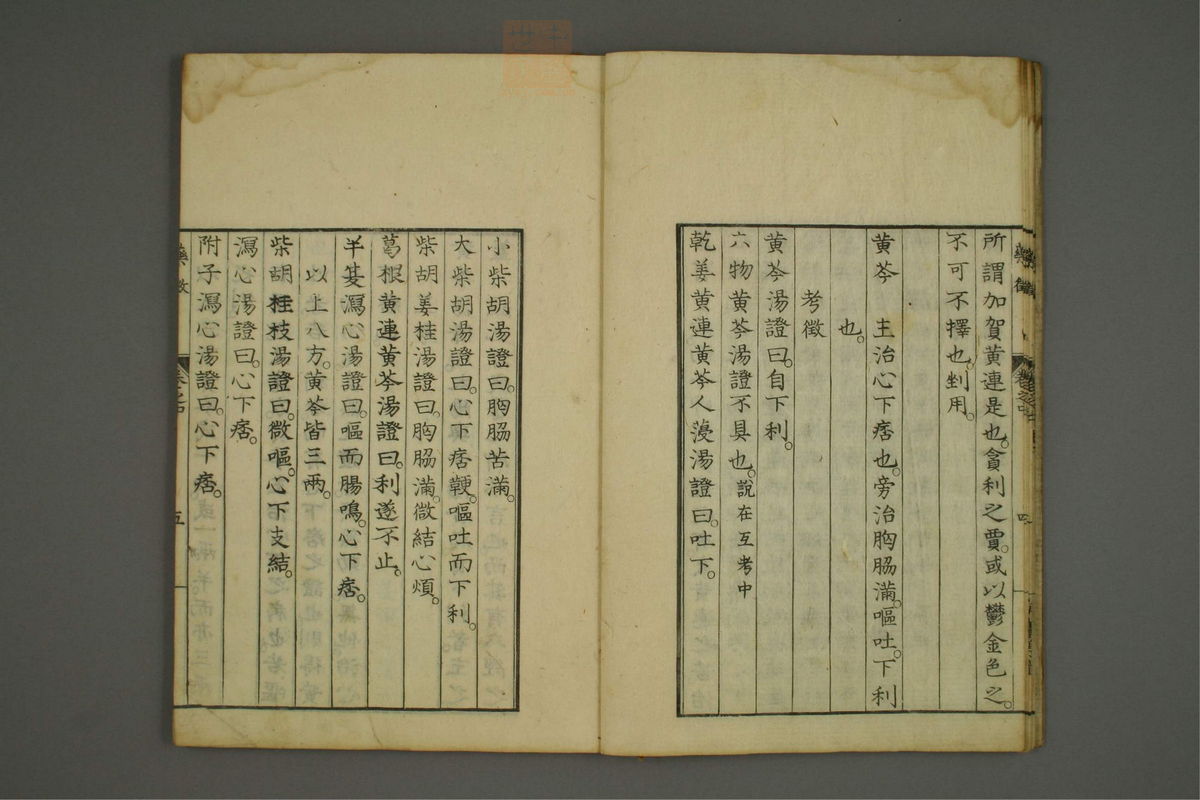 所謂加賀黄連是也。貪利之賈。或以鬱金色之。
不可不擇也。剉用。
黄芩 主治心下痞也。旁治胸脇滿。嘔吐。下利
也。
考徵
黄芩湯證曰。自下利。
六物黄芩湯證不具也。說在互考中
乾姜黄連黄芩人薓湯證曰。吐下。
小柴胡湯證曰。胸脇苦滿。
大柴胡湯證曰。心下痞鞕。嘔吐而下利。
柴胡姜桂湯證曰。胸脇滿。微結心煩。
葛根黄連黄芩湯證曰。利遂不止。
半夏瀉心湯證曰。嘔而腸鳴。心下痞。
以上八方。黄芩皆三兩。
柴胡桂枝湯證曰。微嘔。心下支結。
瀉心湯證曰。心下痞。
附子瀉心湯證曰。心下痞。
五